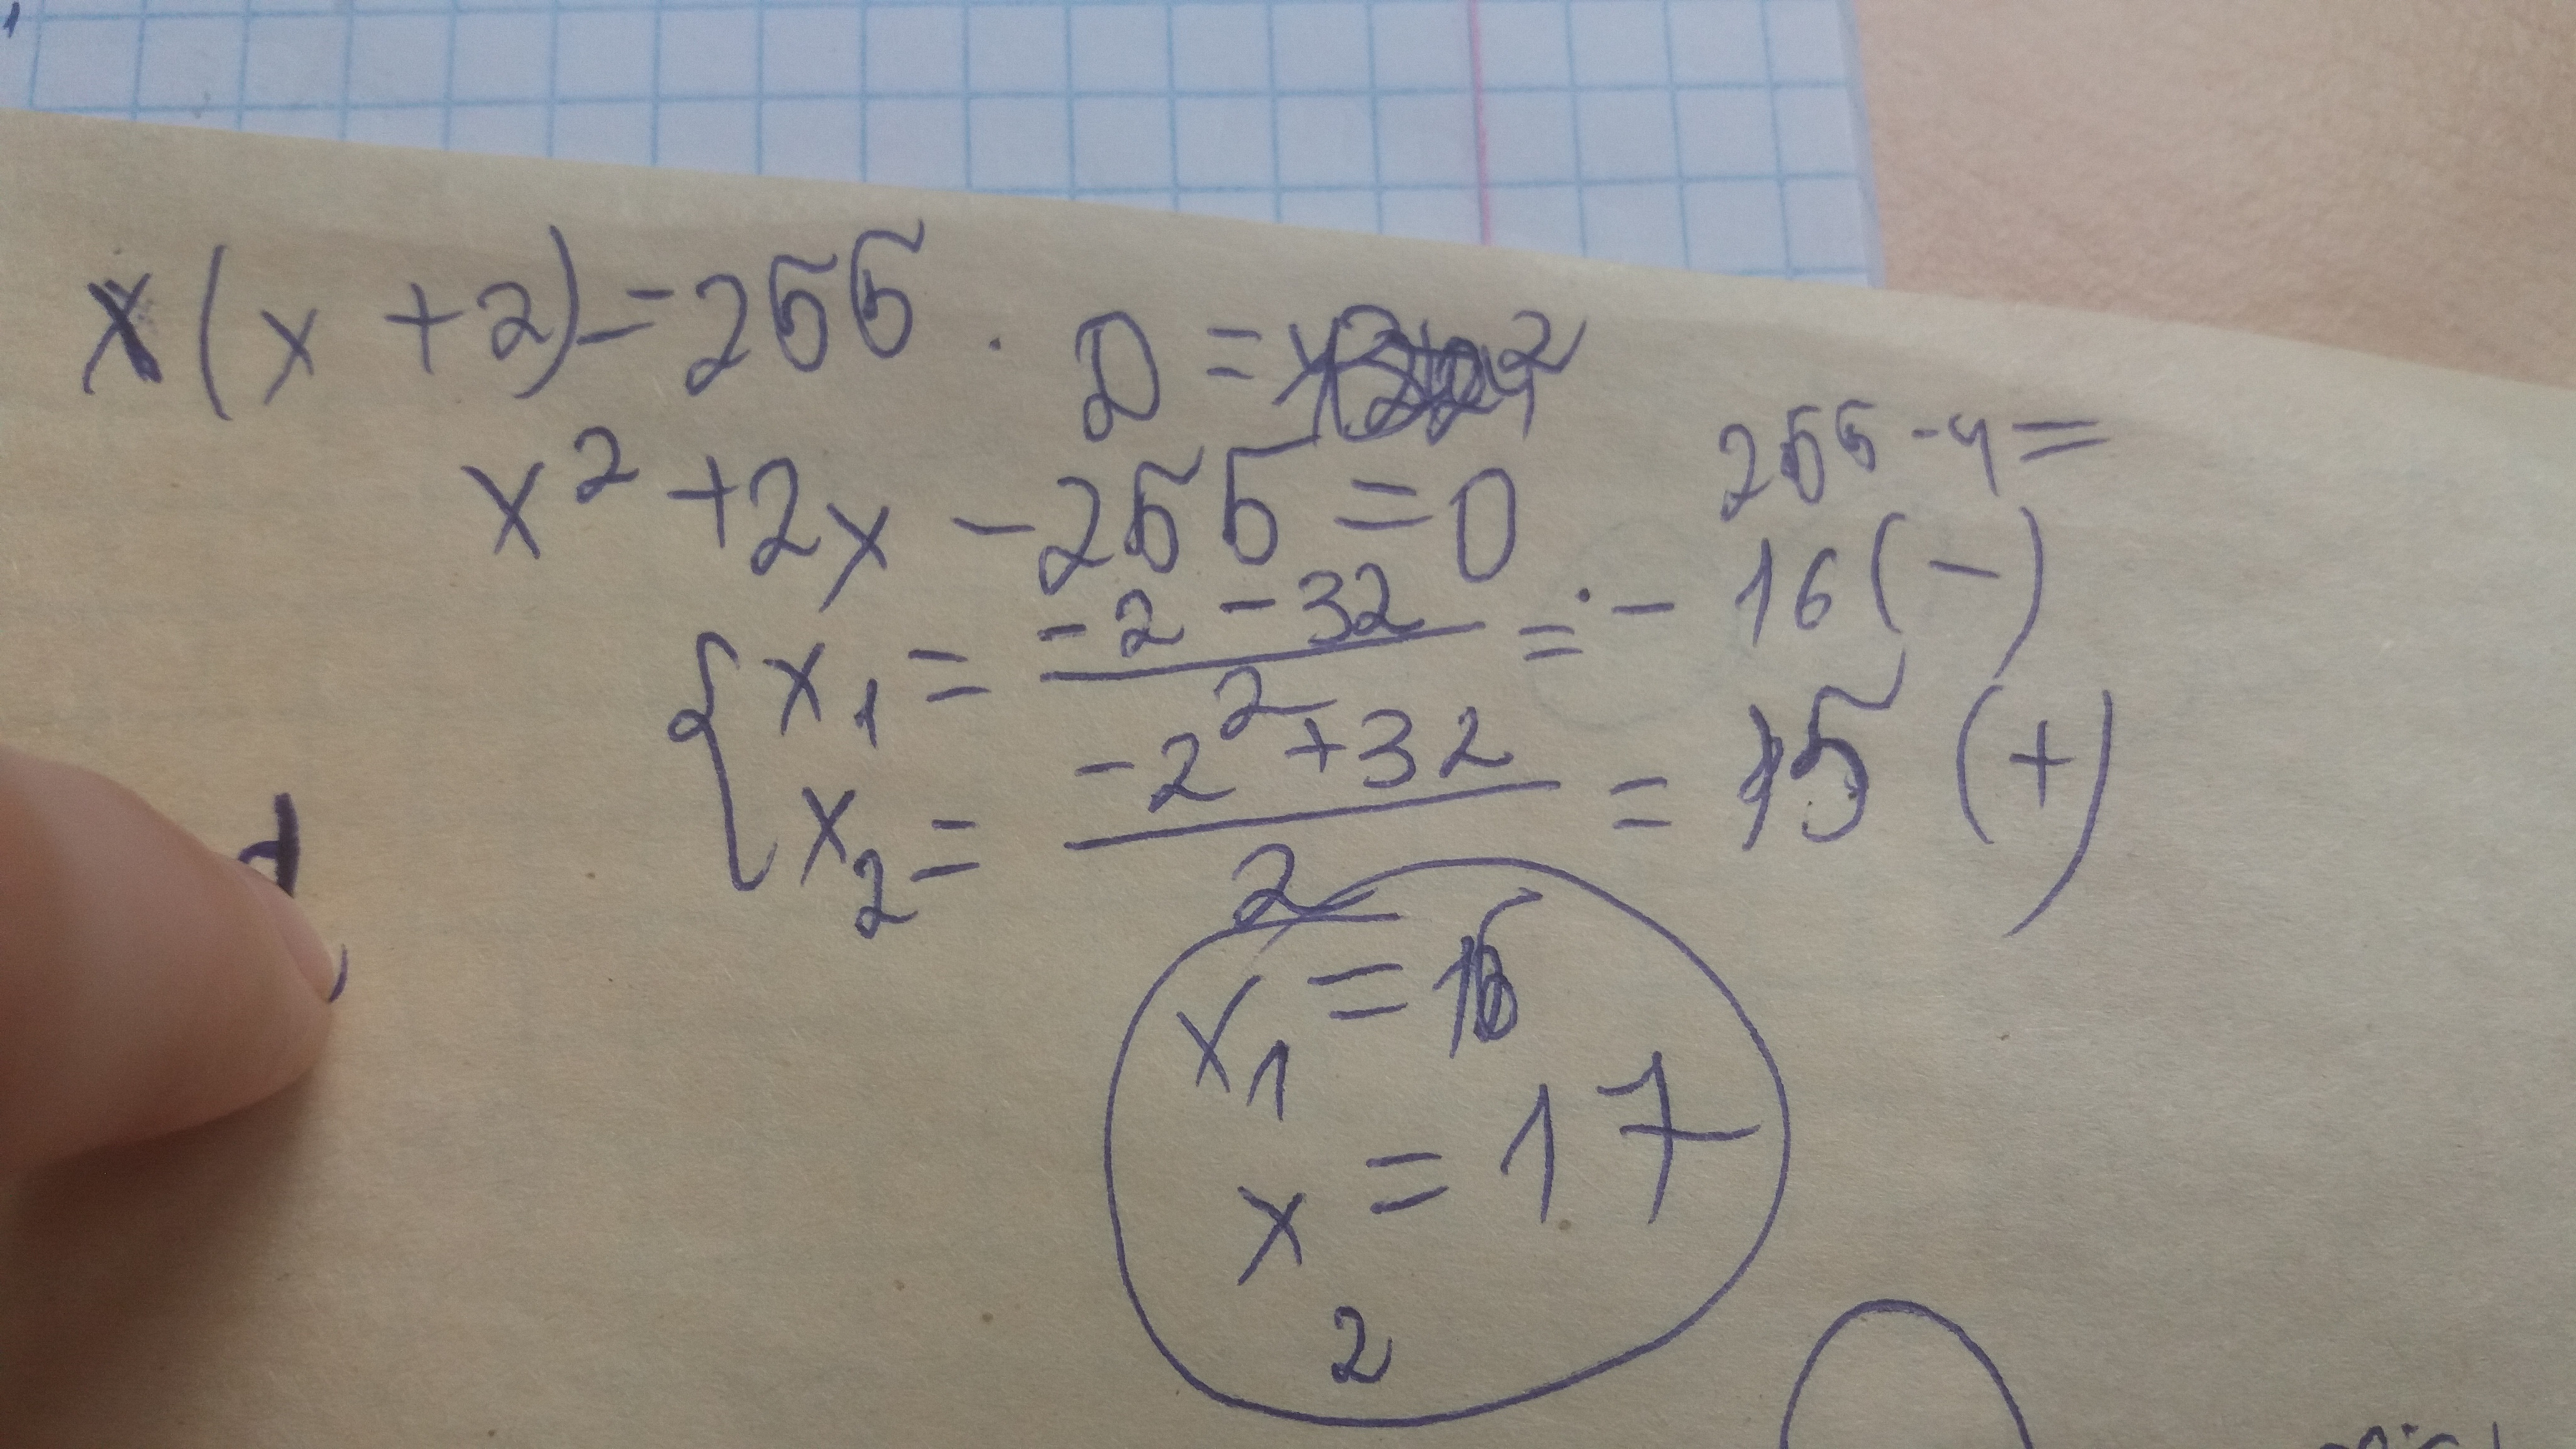 x(x+2)=255. D=
x² + 2x - 255 = 0
255 - 4 =
{ x₁ = (-2 - 32)/2 = - 16 (-)
x₂ = (-2 + 32)/2 = 15 (+)
x₁ = 15
x₂ = 17